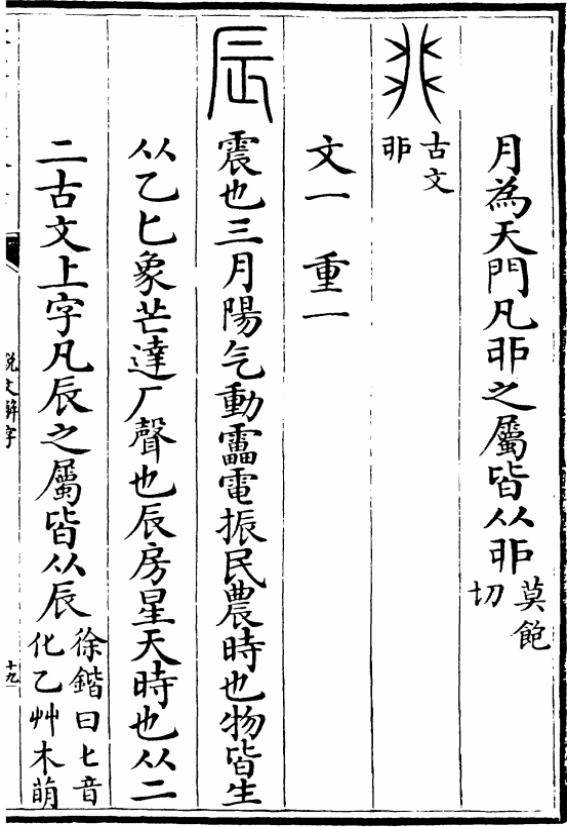 月為天門凡戼之屬皆从戼莫飽切
古文戼
文一　重一
辰 震也三月陽气動靁電振民農時也物皆生
从乙匕象芒達厂聲也辰房星天時也从二
二古文上字凡辰之屬皆从辰徐鍇曰匕音化乙艸木萌
説文解字
十九